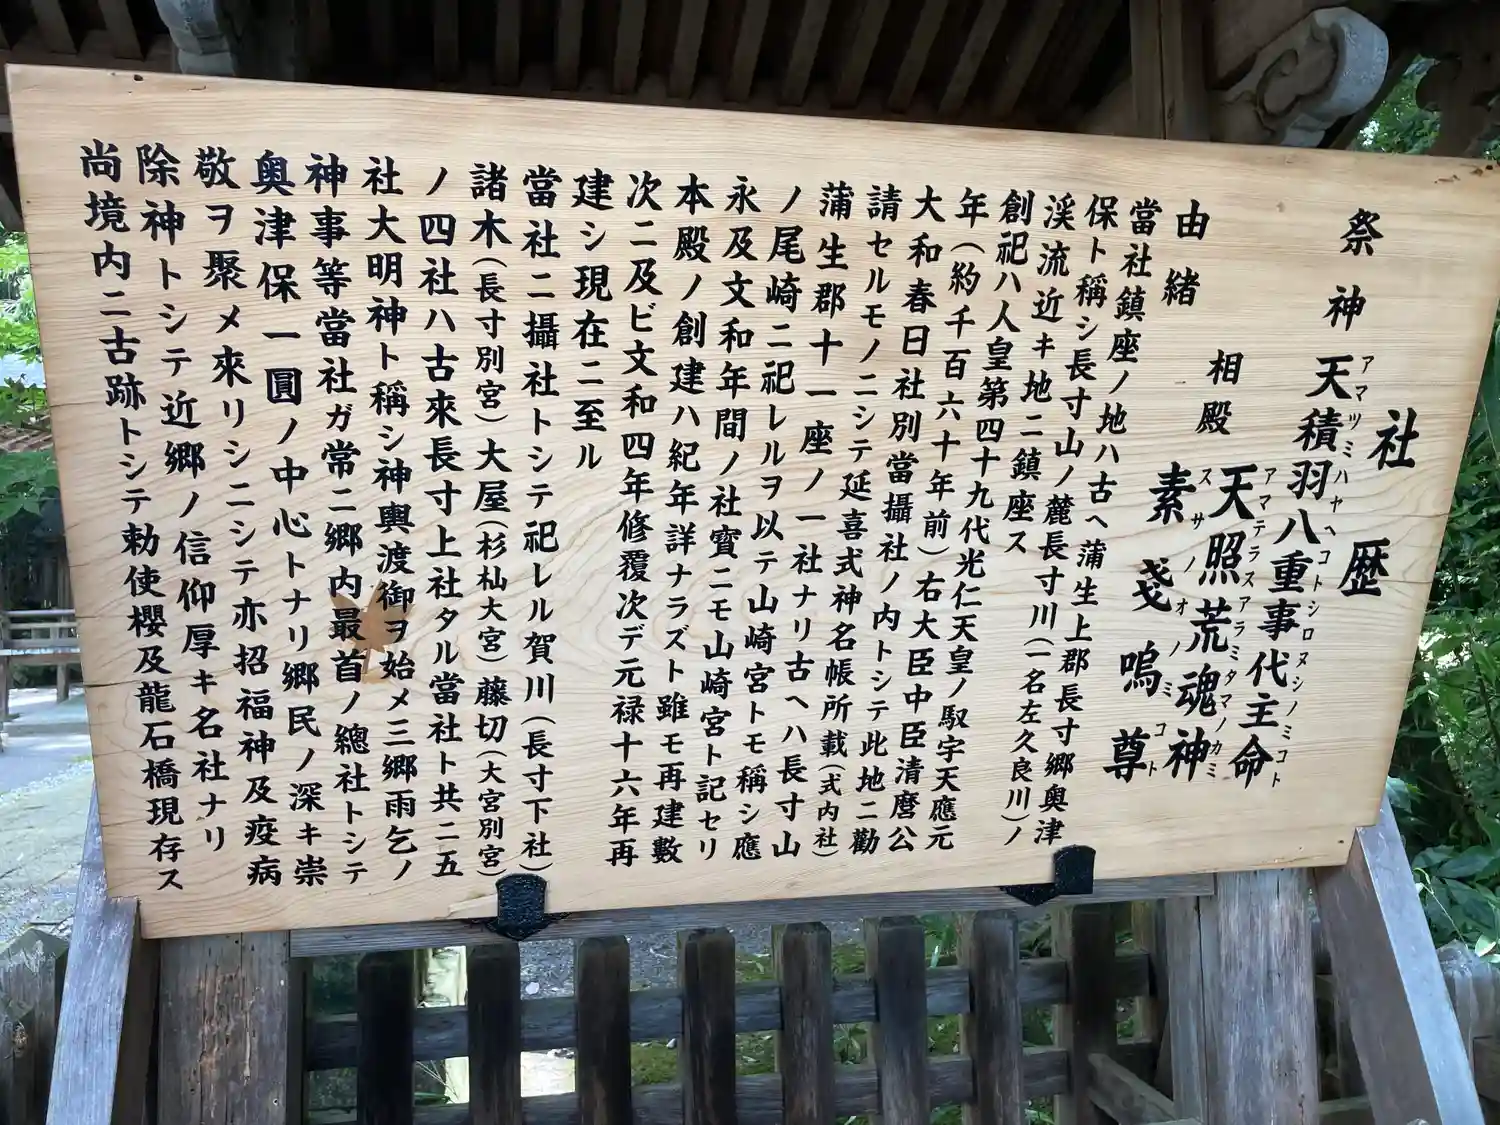 社歴
祭神 天積羽八重事代主命
アマツミハヤヘコトシロヌシノミコト
相殿 天照荒魂神
アマテラスアラミタマノカミ
素戔嗚尊
スサノオノミコト
由緒
當社鎮座ノ地ハ古ヘ蒲生上郡長寸郷奥津
保ト稱シ長寸山ノ麓長寸川(一名左久良川)ノ
渓流近キ地ニ鎮座ス
創祀ハ人皇第四十九代光仁天皇ノ馭宇天應元
年(約千百六十年前)右大臣中臣清麿公
大和春日社別當攝社ノ内トシテ此地ニ勸
請セルモノニシテ延喜式神名帳所載(式内社)
蒲生郡十一座ノ一社ナリ古ヘハ長寸山
ノ尾崎ニ祀レルヲ以テ山崎宮トモ稱シ應
永及文和年間ノ社寳ニモ山崎宮ト記セリ
本殿ノ創建ハ紀年詳ナラズト雖モ再建數
次ニ及ビ文和四年修覆次デ元禄十六年再
建シ現在ニ至ル
當社ニ攝社トシテ祀レル賀川(長寸下社)
諸木(長寸別宮)大屋(杉杣大宮)藤切(大宮別宮)
ノ四社ハ古來長寸上社タル當社ト共ニ五
社大明神ト稱シ神輿渡御ヲ始メ三郷雨乞ノ
神事等當社ガ常ニ郷内最首ノ總社トシテ
奥津保一圓ノ中心トナリ郷民ノ深キ崇
敬ヲ聚メ來リシニシテ亦招福神及疫病
除神トシテ近郷ノ信仰厚キ名社ナリ
尚境内ニ古跡トシテ勅使櫻及龍石橋現存ス